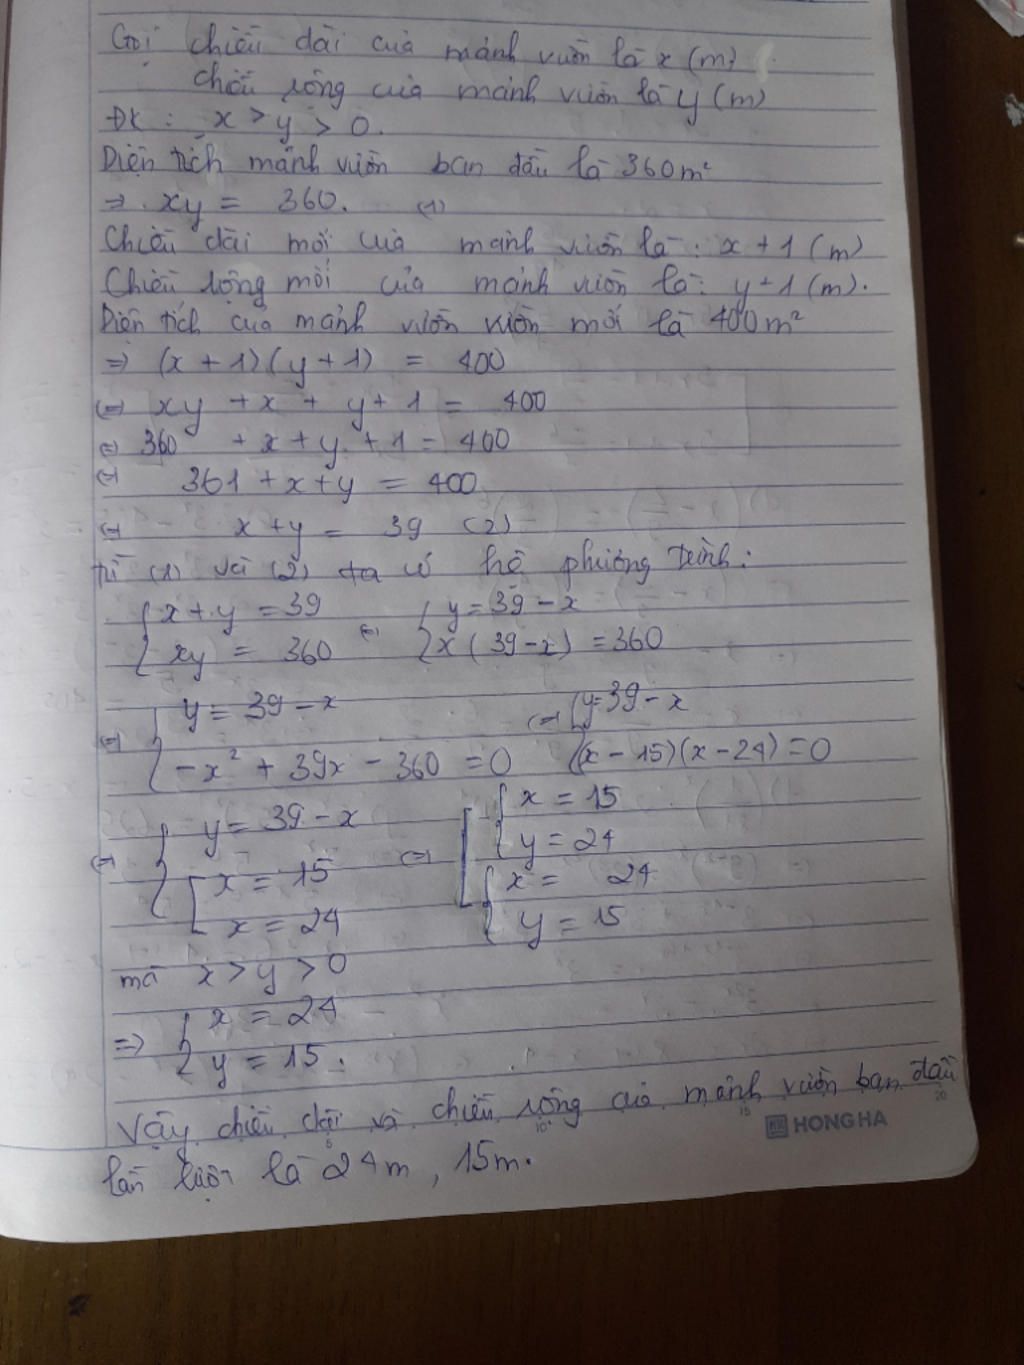 Gọi chiều dài của mảnh vườn là x (m)
chiều rộng của mảnh vườn là y (m)
ĐK : x > y > 0.
Diện tích mảnh vườn ban đầu là 360m²
=> xy = 360. (1)
Chiều dài mới của mảnh vườn là : x + 1 (m)
Chiều rộng mới của mảnh vườn là : y + 1 (m).
Diện tích của mảnh vườn vườn mới là 400m²
=> (x + 1)(y + 1) = 400
<=> xy + x + y + 1 = 400
<=> 360 + x + y + 1 = 400
<=> 361 + x + y = 400
<=> x + y = 39 (2)
Từ (1) và (2) ta có hệ phương trình :
{ x + y = 39 <=> { y = 39 - x
{ xy = 360 { x ( 39 - x ) = 360
<=> { y = 39 - x <=> { y = 39 - x
{ -x² + 39x - 360 = 0 { (x - 15)(x - 24) = 0
<=> { y = 39 - x <=> [ { x = 15
{ y = 24
{ [ x = 15 { x = 24
[ x = 24 { y = 15
mà x > y > 0
=> { x = 24
{ y = 15 .
Vậy chiều dài và chiều rộng của mảnh vườn ban đầu
5 10 15 20
HONG HA
lần lượt là 24m , 15m.